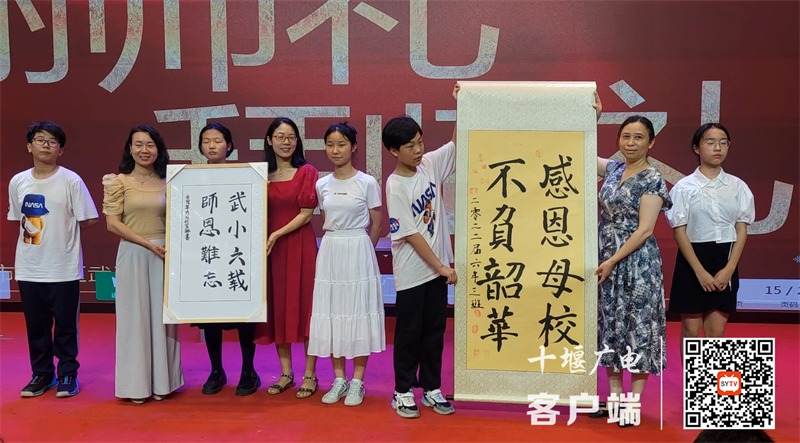 师礼
NASA
武小六载
師恩難忘
NASA
感恩母校
不負韶華
二零二二届六年三班
15 / 2
十堰广电
客户端
SYTV